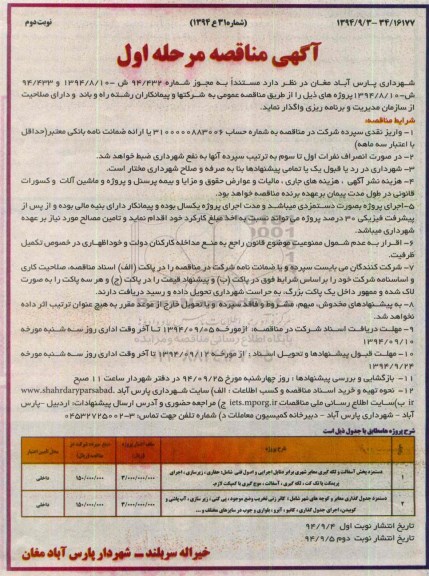 ۱۳۹۴/۹/۳ - ۳۴/۱۶۱۷۷ (شماره ۳۱ع ۱۳۹۴) نوبت دوم
آگهی مناقصه مرحله اول
شهرداری پارس آباد مغان در نظر دارد مستنداً به مجوز شماره ۹۴/۴۳۲ ش - ۱۳۹۴/۸/۱۰ و ۹۴/۴۳۳
ش-۱۳۹۴/۸/۱۰ پروژه های ذیل را از طریق مناقصه عمومی به شرکتها و پیمانکاران رشته راه و باند و دارای صلاحیت
از سازمان مدیریت و برنامه ریزی واگذار نماید.
شرایط مناقصه:
۱- واریز نقدی سپرده شرکت در مناقصه به شماره حساب ۳۱۰۰۰۰۰۸۸۳۰۰۶ یا ارائه ضمانت نامه بانکی معتبر(حداقل
با اعتبار سه ماهه)
۲- در صورت انصراف نفرات اول تا سوم به ترتیب سپرده آنها به نفع شهرداری ضبط خواهد شد.
۳- شهرداری در رد یا قبول یک یا تمامی پیشنهادها بنا به صرفه و صلاح شهرداری مختار است.
۴- هزینه نشر آگهی ، هزینه های جاری ، مالیات و عوارض حقوق و مزایا و بیمه پرسنل و پروژه و ماشین آلات و کسورات
قانونی در طول مدت پیمان برعهده برنده مناقصه خواهد بود.
۵-اجرای پروژه بصورت دستمزدی میباشد و مدت اجرای پروژه یکسال بوده و پیمانکار دارای بنیه مالی بوده و از پس از
پیشرفت فیزیکی ۳۰ درصد پروژه می تواند نسبت به اخذ مبلغ کارکرد خود اقدام نماید و تامین مصالح مورد نیاز بر عهده
شهرداری میباشد.
۶- اقرار به عدم شمول ممنوعیت موضوع قانون راجع به منع مداخله کارکنان دولت و خوداظهاری در خصوص تکمیل
ظرفیت.
۷- شرکت کنندگان می بایست سپرده و یا ضمانت نامه شرکت در مناقصه را در پاکت (الف) اسناد مناقصه، صلاحیت کاری
و اساسنامه شرکت خود را براساس شرایط فوق در پاکت (ب) و پیشنهاد قیمت را در پاکت (ج) و هر سه پاکت را به صورت
لاک شده و ممهور داخل یک پاکت بزرگ، به حراست شهرداری تحویل داده و رسید دریافت دارند.
۸- به پیشنهادهای مخدوش، مبهم، مشروط و فاقد سپرده و یا تحویل خارج از موعد مقرر به هیچ عنوان ترتیب اثر داده
نخواهد شد.
۹- مهلت دریافت اسناد شرکت در مناقصه، ازمورخه ۱۳۹۴/۰۹/۰۵ تا آخر وقت اداری روز سه شنبه مورخه
۱۳۹۴/۰۹/۱۰
۱۰- مهلت قبول پیشنهادها و تحویل اسناد : از مورخه ۱۳۹۴/۰۹/۱۲ تا آخر وقت اداری روز سه شنبه مورخه
۱۳۹۴/۹/۲۴
۱۱- بازگشایی و بررسی پیشنهادها ، روز چهارشنبه مورخ ۹۴/۰۹/۲۵ در دفتر شهردار ساعت ۱۱ صبح
۱۲- نحوه تهیه و خرید اسناد مناقصه و کسب اطلاعات : الف) سایت شهرداری پارس آباد www.shahrdaryparsabad.
ir ب)سایت اطلاع رسانی ملی مناقصات iets.mporg.ir ج) مراجعه حضوری و آدرس ارسال پیشنهادات: اردبیل -پارس
آباد - شهرداری پارس آباد - دبیرخانه کمیسیون معاملات د) شماره تلفن جهت تماس: ۳-۰۴۵۳۲۷۲۵۰۰۲
شرح پروژه ها مطابق با جدول ذیل است
شرح پروژه
محل تامین اعتبار
۱ دستمزد پخش آسفالت و لکه گیری معابر شهری برابر دقایق اجرایی و اصول فنی شامل: حفاری ، زیرسازی ، اجرای ۳/۰۰۰/۰۰۰/۰۰۰ ۱۵۰/۰۰۰/۰۰۰ داخلی
۲ دستمزد جدول گذاری معابر و کوچه های شهر شامل : ۳/۰۰۰/۰۰۰/۰۰۰ ۱۵۰/۰۰۰/۰۰۰ داخلی
تاریخ انتشار نوبت اول ۹۴/۹/۴
تاریخ انتشار نوبت دوم ۹۴/۹/۵
خیراله سربلند – شهردار پارس آباد مغان